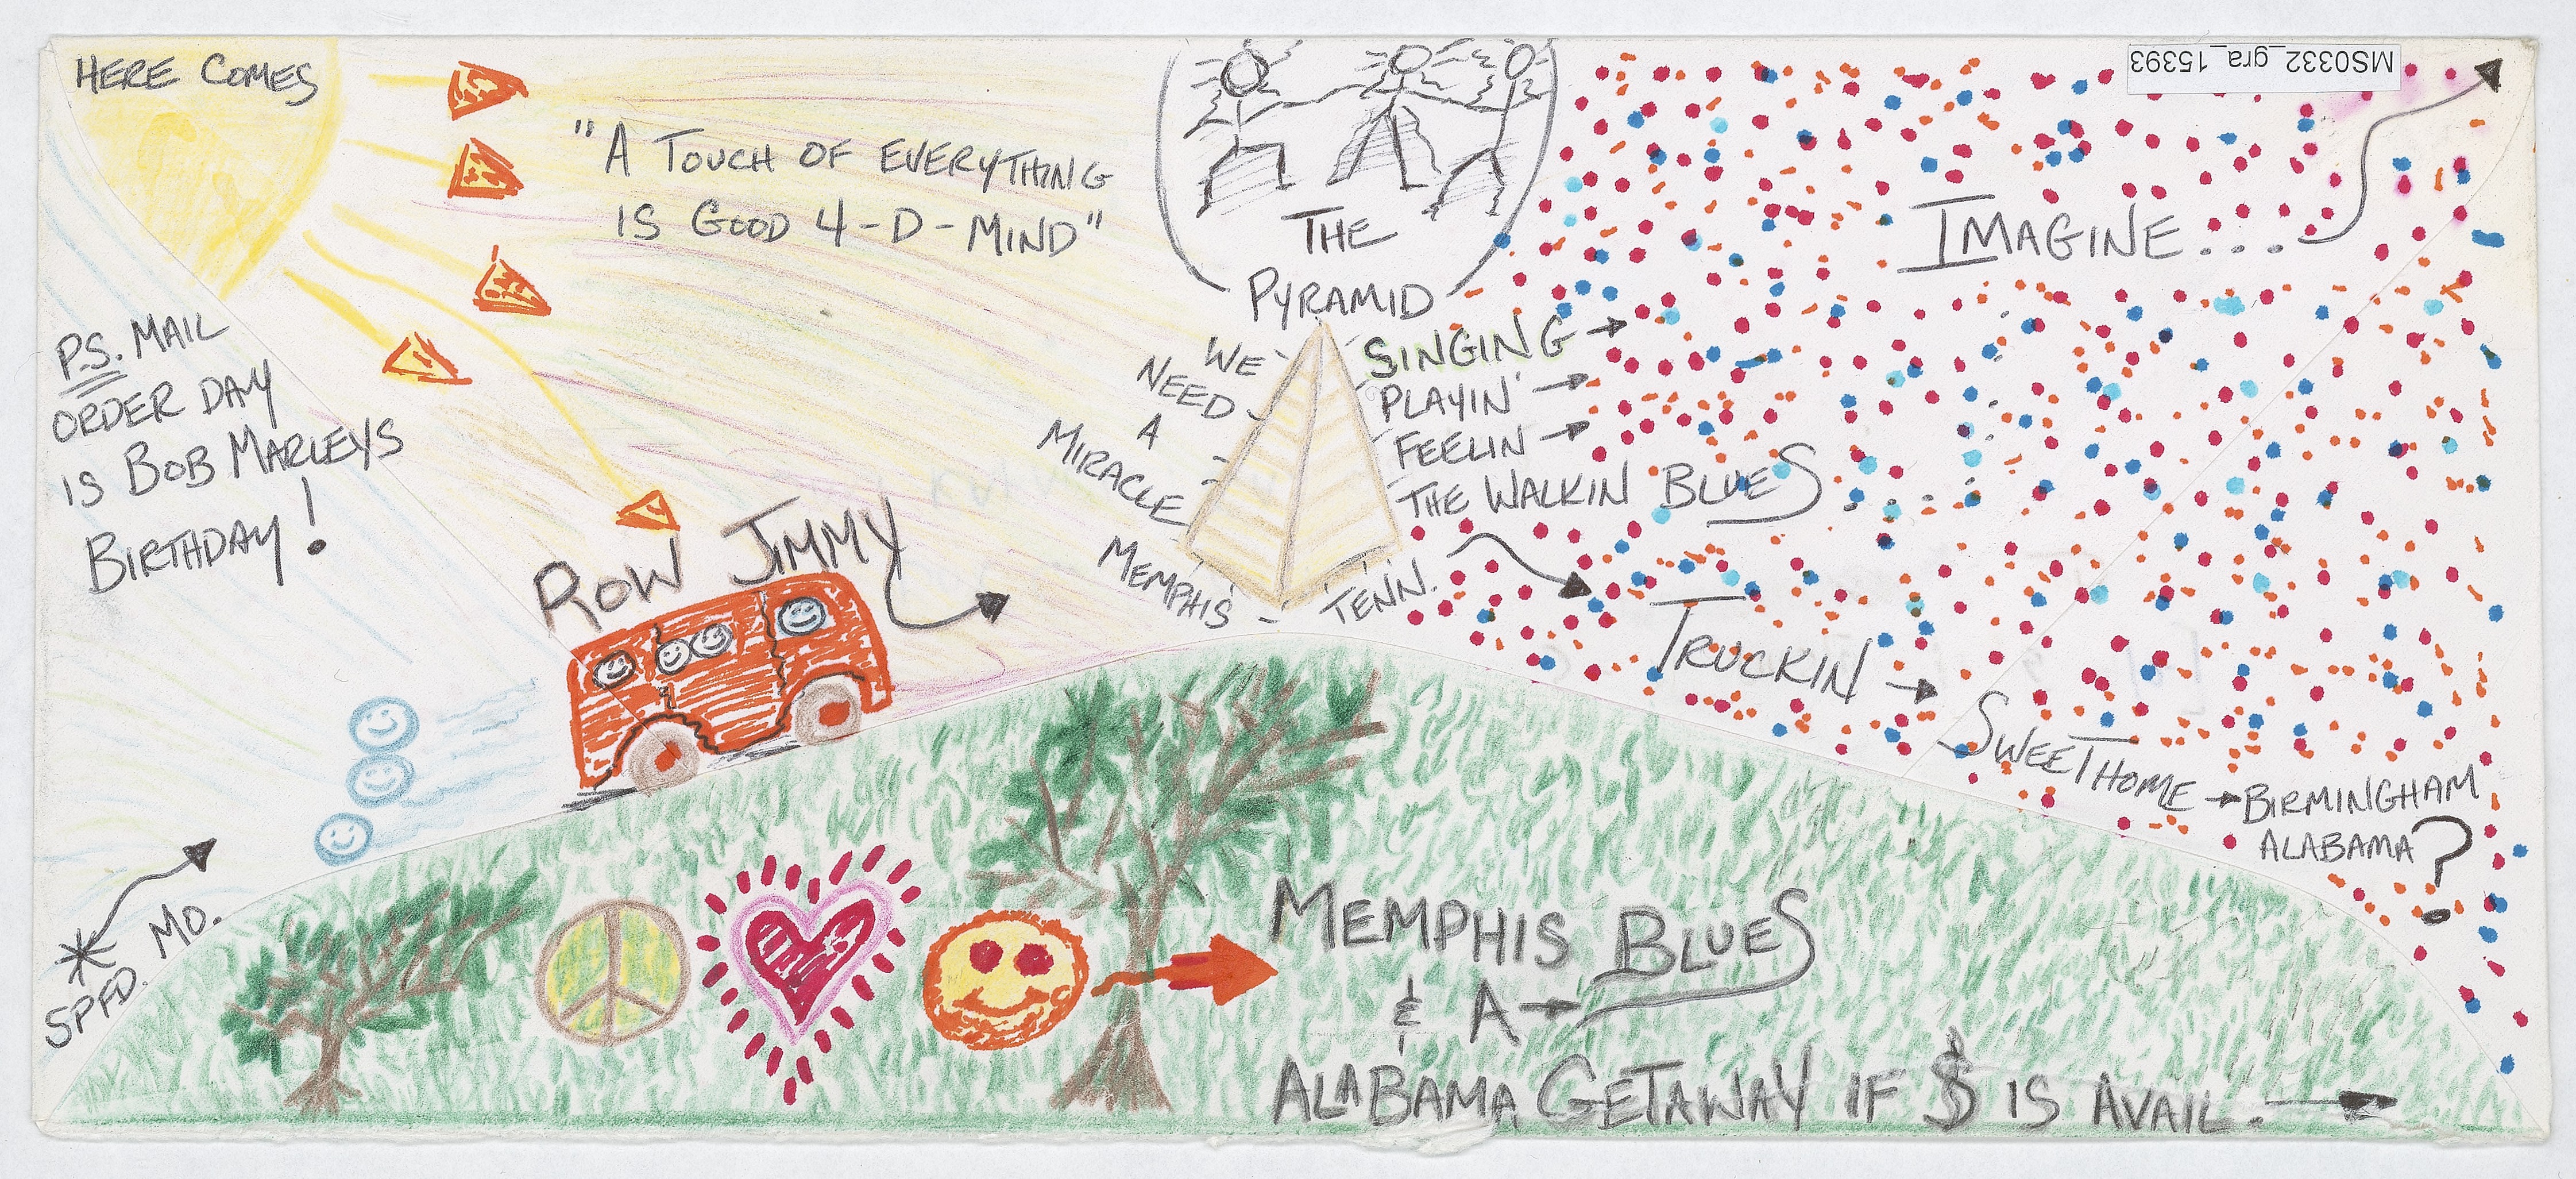 HERE COMES
"A TOUCH OF EVERYTHING
IS GOOD 4-D-MIND"
THE
PYRAMID
MS0332_gra_15393
IMAGINE...
P.S. MAIL
ORDER DAY
IS BOB MARLEYS
BIRTHDAY!
WE
NEED
A
MIRACLE
MEMPHIS -
TENN.
SINGING
PLAYIN'
FEELIN
THE WALKIN BLUES
ROW JIMMY
TRUCKIN
SWEET HOME
BIRMINGHAM
ALABAMA?
SPFD. MO.
MEMPHIS BLUES
& A
ALABAMA GETAWAY IF $ IS AVAIL.